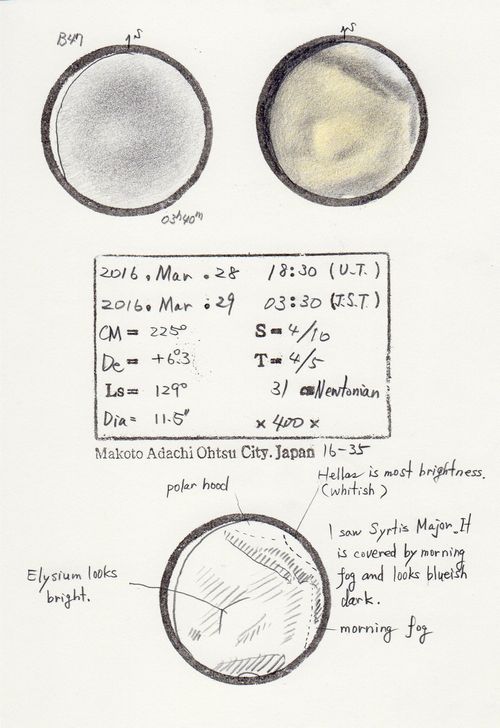 S
B47
S
03h40m
2016. Mar. 28 18:30 (U.T.)
2016. Mar. 29 03:30 (J.S.T)
CM = 225° S = 4/10
De = +6°.3 T = 4/5
Ls = 129° 31 cm Newtonian
Dia = 11.5" × 400 ×
Makoto Adachi Ohtsu City. Japan 16-35
polar hood
Hellas is most brightness.
(whitish)
I saw Syrtis Major. It
is covered by morning
fog and looks blueish
dark.
Elysium looks
bright.
morning fog